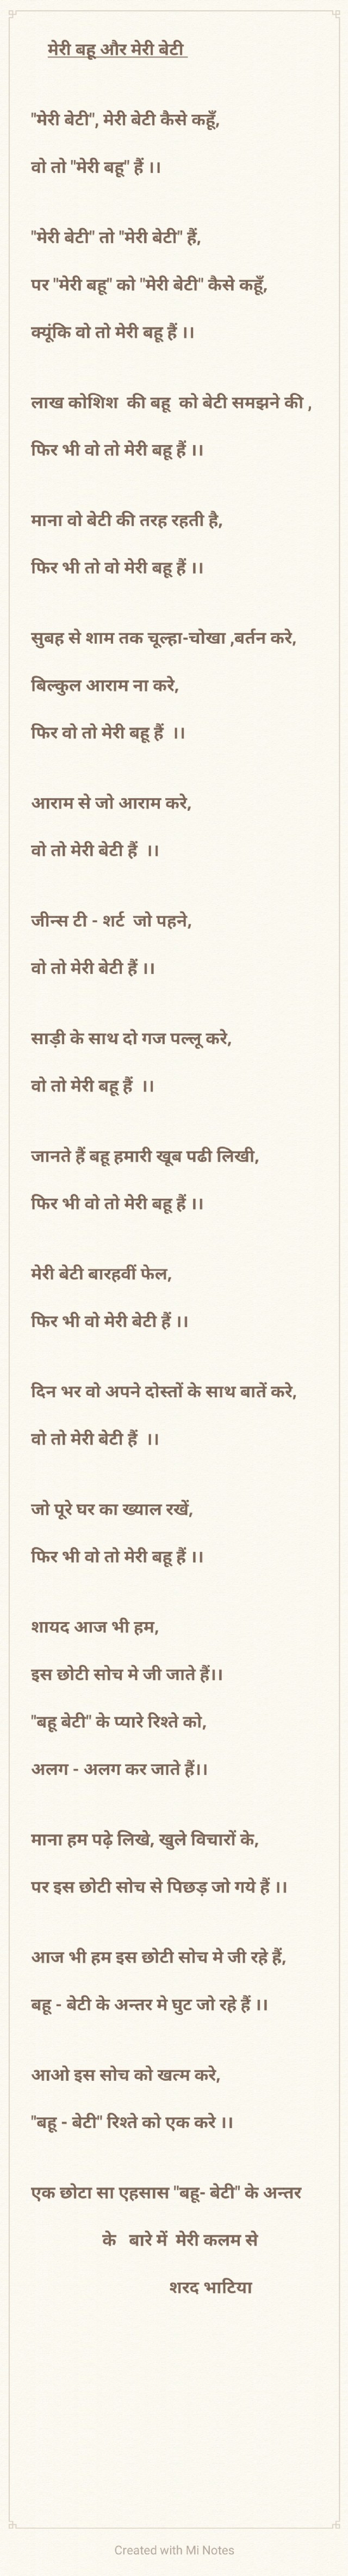 मेरी बहू और मेरी बेटी
"मेरी बेटी", मेरी बेटी कैसे कहूँ,
वो तो "मेरी बहू" हैं ।।
"मेरी बेटी" तो "मेरी बेटी" हैं,
पर "मेरी बहू" को "मेरी बेटी" कैसे कहूँ,
क्यूंकि वो तो मेरी बहू हैं ।।
लाख कोशिश की बहू को बेटी समझने की ,
फिर भी वो तो मेरी बहू हैं ।।
माना वो बेटी की तरह रहती है,
फिर भी तो वो मेरी बहू हैं ।।
सुबह से शाम तक चूल्हा-चोखा ,बर्तन करे,
बिल्कुल आराम ना करे,
फिर वो तो मेरी बहू हैं ।।
आराम से जो आराम करे,
वो तो मेरी बेटी हैं ।।
जीन्स टी - शर्ट जो पहने,
वो तो मेरी बेटी हैं ।।
साड़ी के साथ दो गज पल्लू करे,
वो तो मेरी बहू हैं ।।
जानते हैं बहू हमारी खूब पढी लिखी,
फिर भी वो तो मेरी बहू हैं ।।
मेरी बेटी बारहवीं फेल,
फिर भी वो मेरी बेटी हैं ।।
दिन भर वो अपने दोस्तों के साथ बातें करे,
वो तो मेरी बेटी हैं ।।
जो पूरे घर का ख्याल रखें,
फिर भी वो तो मेरी बहू हैं ।।
शायद आज भी हम,
इस छोटी सोच मे जी जाते हैं।।
"बहू बेटी" के प्यारे रिश्ते को,
अलग - अलग कर जाते हैं।।
माना हम पढ़े लिखे, खुले विचारों के,
पर इस छोटी सोच से पिछड़ जो गये हैं ।।
आज भी हम इस छोटी सोच मे जी रहे हैं,
बहू - बेटी के अन्तर मे घुट जो रहे हैं ।।
आओ इस सोच को खत्म करे,
"बहू - बेटी" रिश्ते को एक करे ।।
एक छोटा सा एहसास "बहू- बेटी" के अन्तर
के बारे में मेरी कलम से
शरद भाटिया
Created with Mi Notes